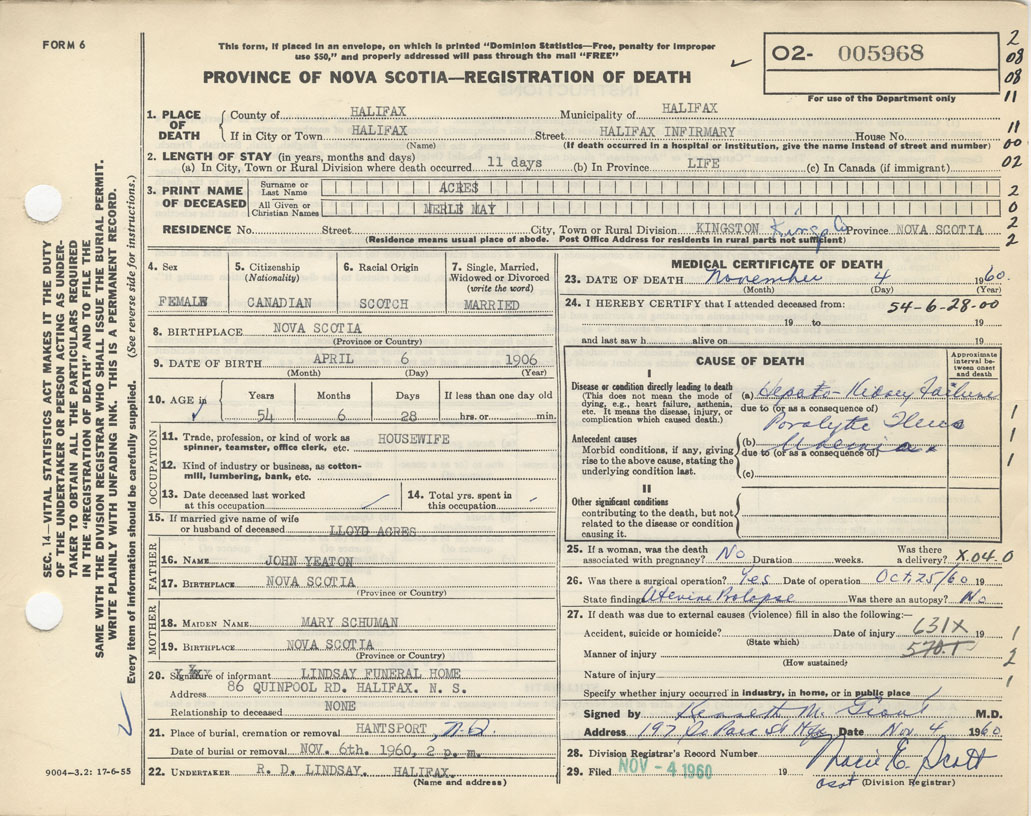 FORM 6
This form, if placed in an envelope, on which is printed "Dominion Statistics—Free, penalty for improper
use $50," and properly addressed will pass through the mail "FREE"
PROVINCE OF NOVA SCOTIA—REGISTRATION OF DEATH
02- 005968
For use of the Department only
2
08
08
11
11
00
02
2
0
2
2
1. PLACE OF DEATH
County of HALIFAX Municipality of HALIFAX
If in City or Town HALIFAX Street HALIFAX INFIRMARY House No.
(Name) (If death occurred in a hospital or institution, give the name instead of street and number)
2. LENGTH OF STAY (in years, months and days)
(a) In City, Town or Rural Division where death occurred 11 days (b) In Province LIFE (c) In Canada (if immigrant)
3. PRINT NAME OF DECEASED
Surname or Last Name ACRES
All Given or Christian Names MERLE MAY
RESIDENCE No. Street City, Town or Rural Division KINGSTON Kings Co Province NOVA SCOTIA
(Residence means usual place of abode. Post Office Address for residents in rural parts not sufficient)
4. Sex FEMALE
5. Citizenship (Nationality) CANADIAN
6. Racial Origin SCOTCH
7. Single, Married, Widowed or Divorced (write the word) MARRIED
8. BIRTHPLACE NOVA SCOTIA
(Province or Country)
9. DATE OF BIRTH APRIL 6 1906
(Month) (Day) (Year)
10. AGE in Years Months Days If less than one day old
54 6 28 hrs. or min.
OCCUPATION
11. Trade, profession, or kind of work as spinner, teamster, office clerk, etc. HOUSEWIFE
12. Kind of industry or business, as cotton-mill, lumbering, bank, etc.
13. Date deceased last worked at this occupation
14. Total yrs. spent in this occupation
15. If married give name of wife or husband of deceased LLOYD ACRES
FATHER
16. NAME JOHN YEATON
17. BIRTHPLACE NOVA SCOTIA
(Province or Country)
MOTHER
18. MAIDEN NAME MARY SCHUMAN
19. BIRTHPLACE NOVA SCOTIA
(Province or Country)
20. Signature of informant LINDSAY FUNERAL HOME
Address 86 QUINPOOL RD. HALIFAX. N. S.
Relationship to deceased NONE
21. Place of burial, cremation or removal HANTSPORT,
Date of burial or removal NOV. 6th. 1960, 2 p. m.
22. UNDERTAKER R. D. LINDSAY. HALIFAX.
(Name and address)
MEDICAL CERTIFICATE OF DEATH
23. DATE OF DEATH November 4 1960.
(Month) (Day) (Year)
24. I HEREBY CERTIFY that I attended deceased from: 54-6-28-00
19 to 19
and last saw h alive on 19
CAUSE OF DEATH
Approximate interval between onset and death
I
Disease or condition directly leading to death
(This does not mean the mode of dying, e.g., heart failure, asthenia, etc. It means the disease, injury, or complication which caused death.)
(a) Hepato-Kidney Failure
due to (or as a consequence of)
Paralytic Ileus
Antecedent causes
Morbid conditions, if any, giving rise to the above cause, stating the underlying condition last.
(b) Uremia
due to (or as a consequence of)
(c)
II
Other significant conditions
contributing to the death, but not related to the disease or condition causing it.
1
1
1
25. If a woman, was the death associated with pregnancy? No Duration weeks. Was there a delivery? X04.0
26. Was there a surgical operation? Yes Date of operation Oct 25/60 19
State findings Uterine Prolapse Was there an autopsy? No
27. If death was due to external causes (violence) fill in also the following:—
Accident, suicide or homicide? Date of injury 631X 19
(State which)
Manner of injury 570.5
(How sustained)
Nature of injury
Specify whether injury occurred in industry, in home, or in public place
1
2
1
Signed by Kenneth M. Grant M.D.
Address 197 So Park St Hfx Date Nov. 4 1960
28. Division Registrar's Record Number
29. Filed NOV - 4 1960 19
Marie E. Scott
asst (Division Registrar)
SEC. 14—VITAL STATISTICS ACT MAKES IT THE DUTY
OF THE UNDERTAKER OR PERSON ACTING AS UNDER-
TAKER TO OBTAIN ALL THE PARTICULARS REQUIRED
IN THE "REGISTRATION OF DEATH" AND TO FILE THE
SAME WITH THE DIVISION REGISTRAR WHO SHALL ISSUE THE BURIAL PERMIT.
WRITE PLAINLY WITH UNFADING INK. THIS IS A PERMANENT RECORD.
Every item of information should be carefully supplied. (See reverse side for instructions.)
9004—3.2: 17-6-55